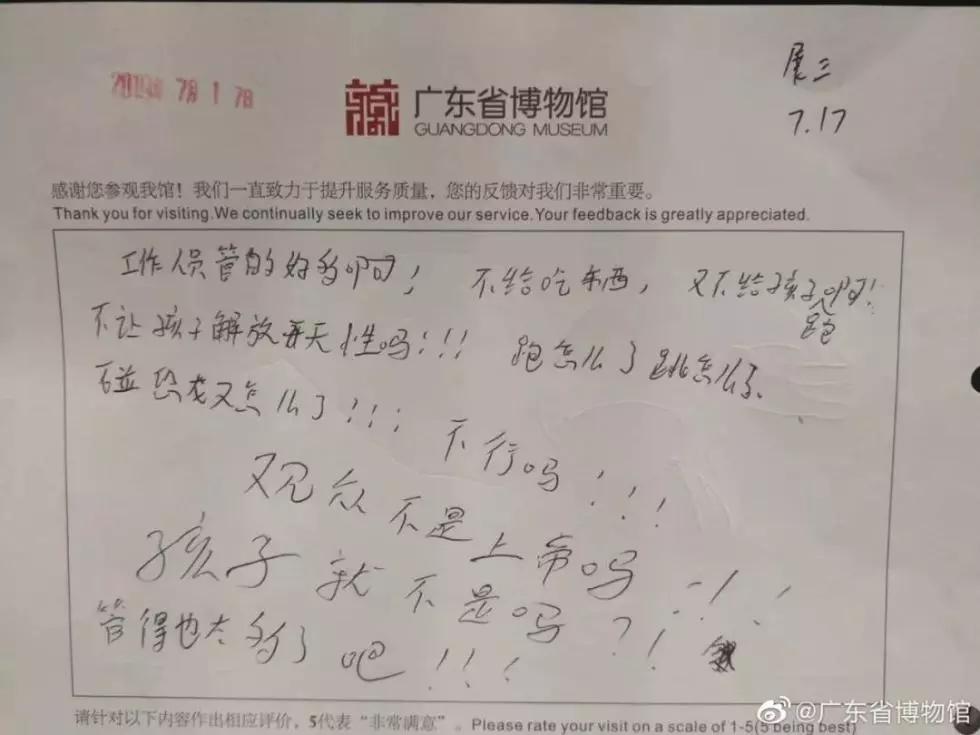 2019年 7月 17日
展三
7.17
广东省博物馆
GUANGDONG MUSEUM
感谢您参观我馆！我们一直致力于提升服务质量，您的反馈对我们非常重要。
Thank you for visiting.We continually seek to improve our service.Your feedback is greatly appreciated.
工作人员管的好多啊！ 不给吃东西，又不给孩子跑啊！
不让孩子解放天性吗！！！ 跑怎么了跳怎么了、
碰恐龙又怎么了！！！ 不行吗！！！
观众不是上帝吗！！！
孩子就不是吗？！
管得也太多了吧！！！
请针对以下内容作出相应评价，5代表“非常满意”。Please rate your visit on a scale of 1-5(5 being best)
@广东省博物馆